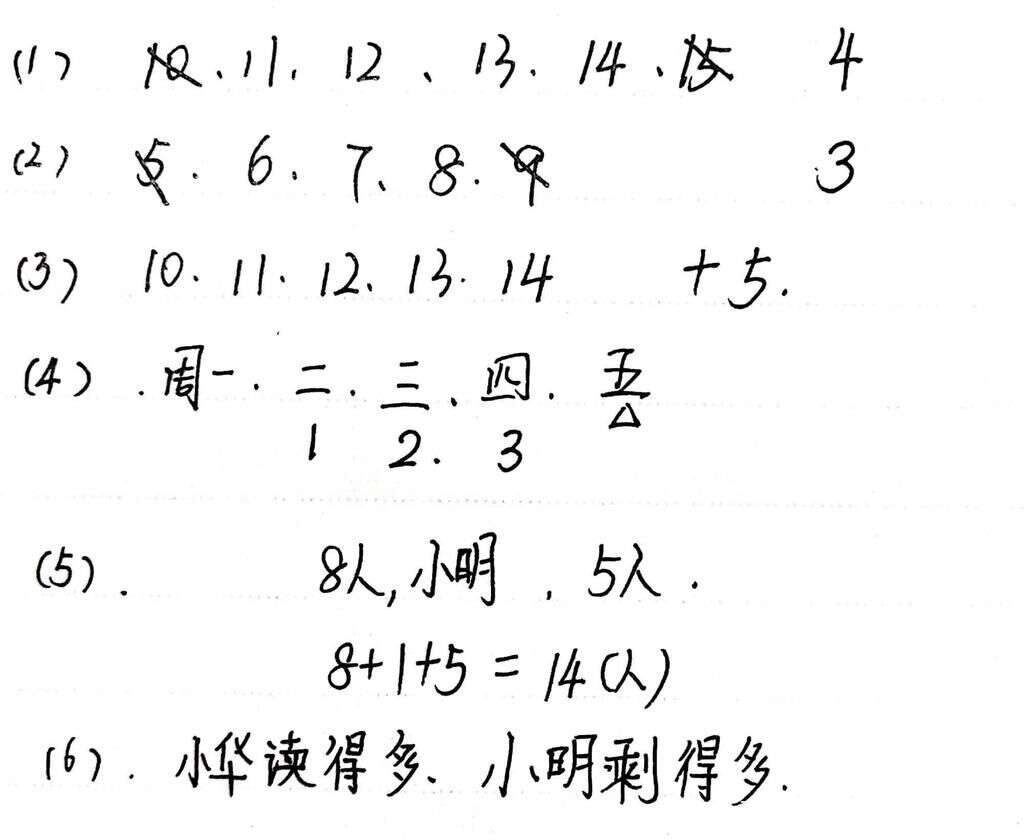 (1) 10、11、12、13、14、15 4
(2) 5、6、7、8、9 3
(3) 10、11、12、13、14 +5.
(4) .周一、二、三、四、五
1 2. 3 △
(5). 8人,小明 . 5人.
8+1+5=14(人)
(6). 小华读得多、小明剩得多.